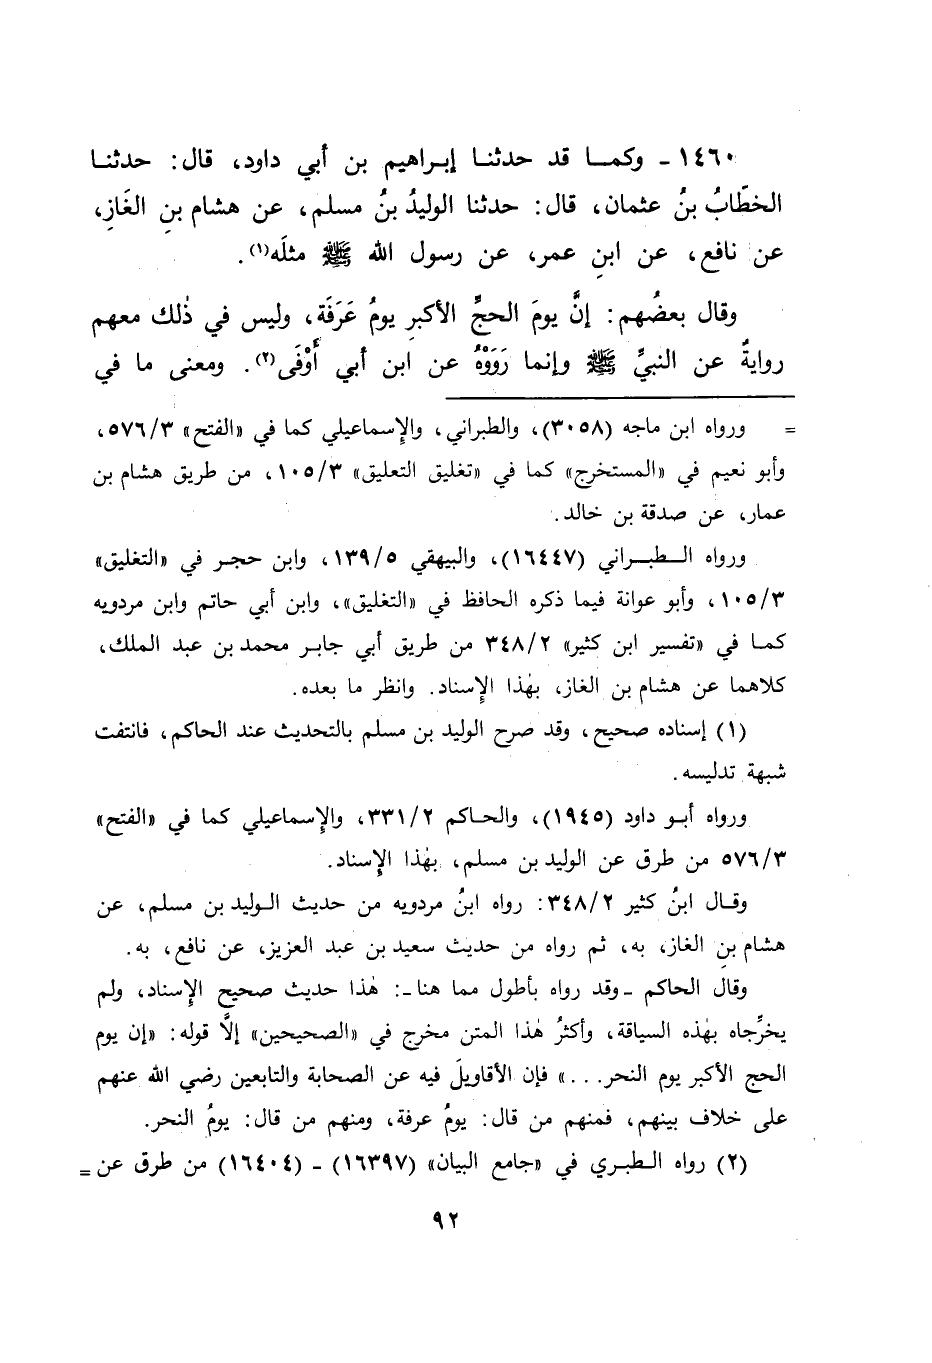 ١٤٦٠ - وكمـا قد حدثنـا إبـراهيم بن أبي داود، قال: حدثنـا
الخطّابُ بنُ عثمان، قال: حدثنا الوليدُ بنُ مسلم، عن هشام بنِ الغَازِ،
عن نافع، عن ابنِ عمر، عن رسول الله ﷺ مثلَه(١).
وقال بعضُهم: إنَّ يومَ الحجِّ الأكبرِ يومُ عَرَفَة، وليس في ذٰلك معهم
روايةٌ عن النبيِّ ﷺ وإنما رَوَوْهُ عن ابن أبي أَوْفَى(٢). ومعنى ما في
= ورواه ابن ماجه (٣٠٥٨)، والطبراني، والإسماعيلي كما في «الفتح» ٥٧٦/٣،
وأبو نعيم في «المستخرج» كما في «تغليق التعليق» ١٠٥/٣، من طريق هشام بن
عمار، عن صدقة بن خالد.
ورواه الـطبـراني (١٦٤٤٧)، والبيهقي ١٣٩/٥، وابن حجـر في «التغليق»
١٠٥/٣، وأبو عوانة فيما ذكره الحافظ في «التغليق»، وابن أبي حاتم وابن مردويه
كمـا في «تفسير ابن كثير» ٣٤٨/٢ من طريق أبي جابـر محمد بن عبد الملك،
كلاهما عن هشام بن الغاز، بهٰذا الإسناد. وانظر ما بعده.
(١) إسناده صحيح، وقد صرح الوليد بن مسلم بالتحديث عند الحاكم، فانتفت
شبهة تدليسه.
ورواه أبـو داود (١٩٤٥)، والحـاكم ٣٣١/٢، والإسماعيلي كما في «الفتح»
٥٧٦/٣ من طرق عن الوليد بن مسلم، بهٰذا الإسناد.
وقـال ابنُ كثير ٣٤٨/٢: رواه ابنُ مردويه من حديث الـوليد بن مسلم، عن
هشام بنِ الغاز، به، ثم رواه من حديث سعيد بن عبد العزيز، عن نافع، به.
وقال الحاكم ـ وقد رواه بأطول مما هنا ـ: هٰذا حديث صحيح الإسناد، ولم
يخرِّجاه بهٰذه السياقة، وأكثرُ هٰذا المتن مخرج في «الصحيحين» إلَّا قوله: «إن يوم
الحج الأكبر يوم النحر...» فإن الأقاويلَ فيه عن الصحابة والتابعين رضي الله عنهم
على خلاف بينهم، فمنهم من قال: يومُ عرفة، ومنهم من قال: يومُ النحر.
(٢) رواه الـطبـري في «جامع البيان» (١٦٣٩٧) - (١٦٤٠٤) من طرق عن =
٩٢